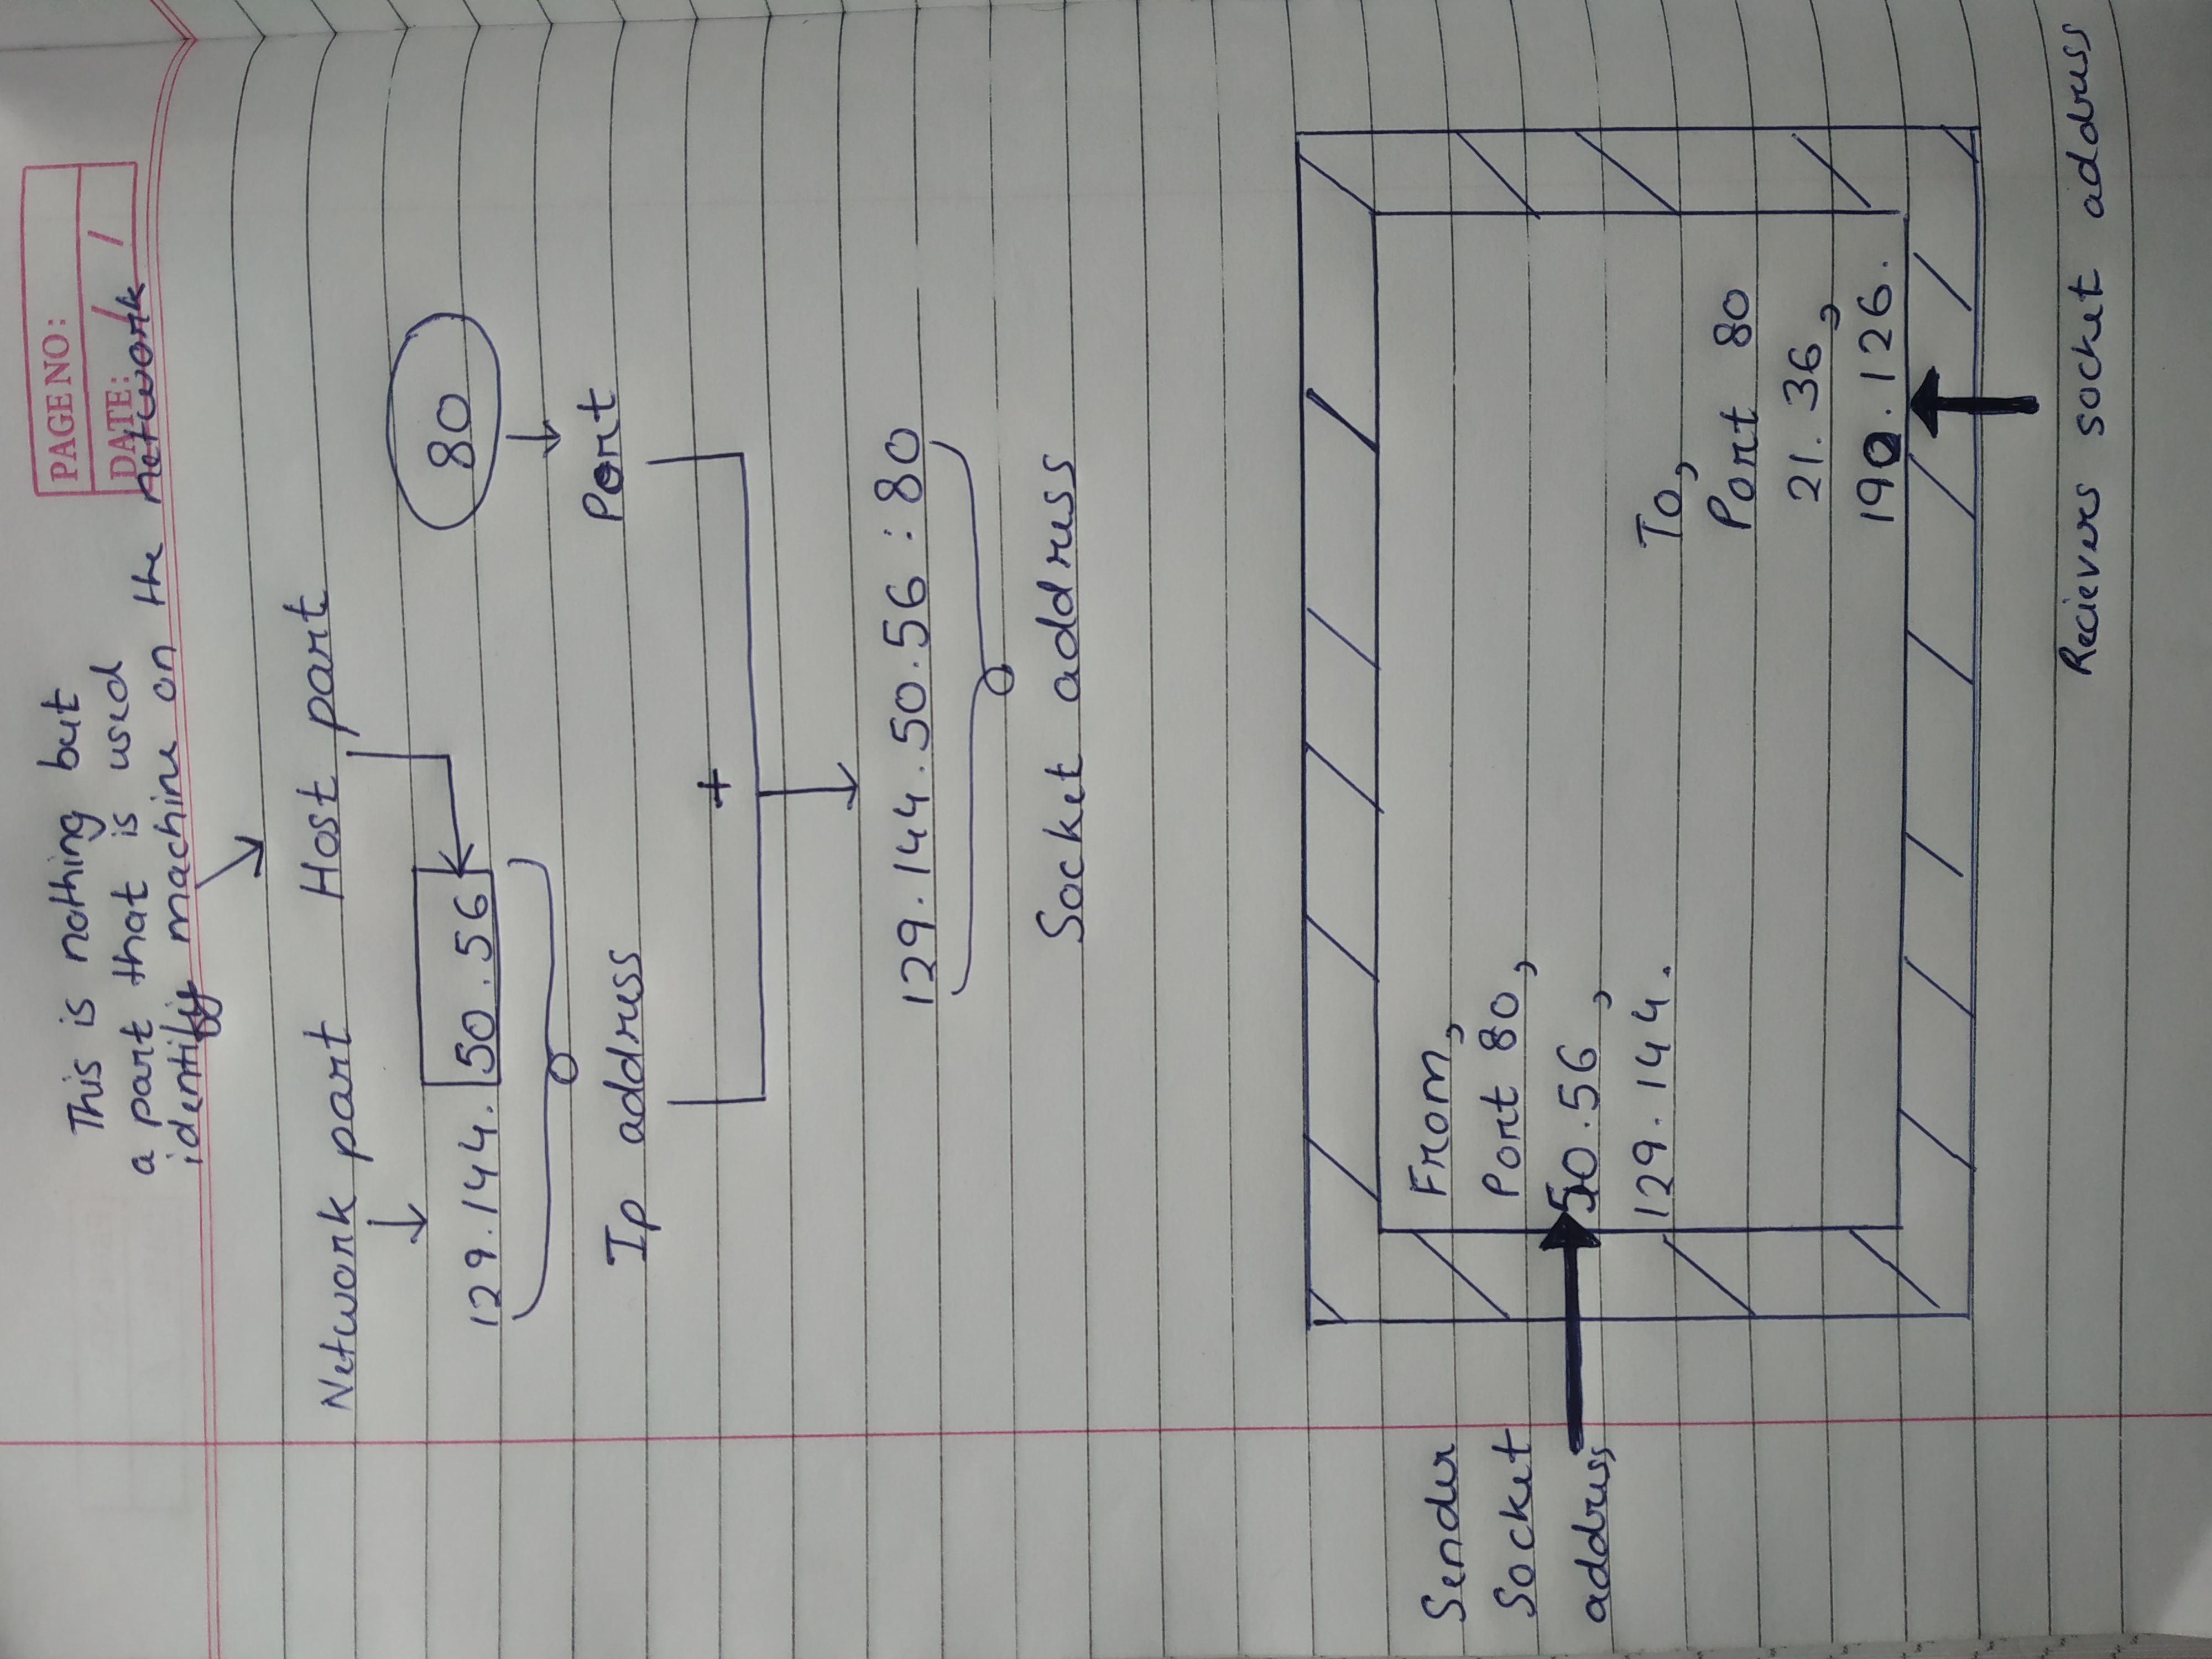 PAGE NO:
DATE: / /
This is nothing but
a part that is used
identify machine on the network
Network part Host part
129.144.50.56 80
Ip address Port
+
129.144.50.56:80
Socket address
From,
Port 80,
50.56,
129.144.
Sender
Socket
address
To,
Port 80
21.36,
190.126.
Recievers socket address